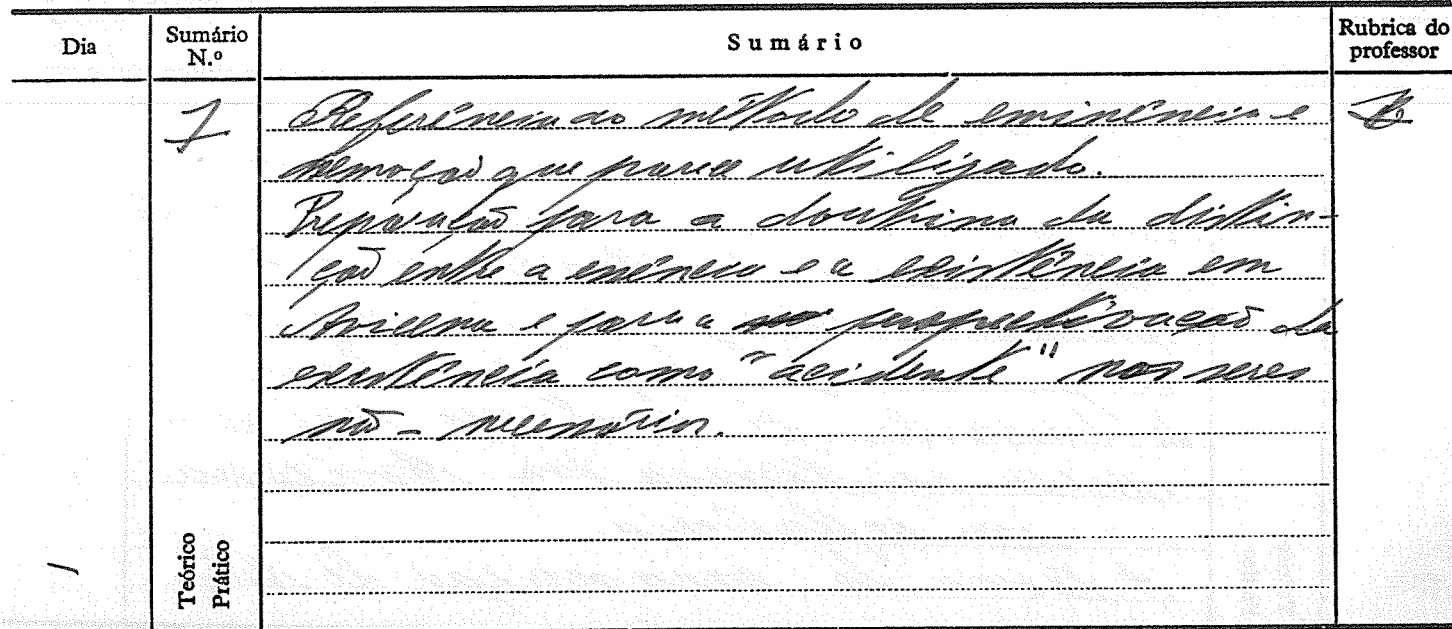 Dia
Sumário
N.º
Sumário
Rubrica do
professor
7
Referência ao método de eminência e
remoção que parece utilizado.
Preparação para a doutrina da distin-
ção entre a essência e a existência em
Avicena e para a perspectivação da
existência como "acidente" nos seres
não-necessários.
Teórico
Prático